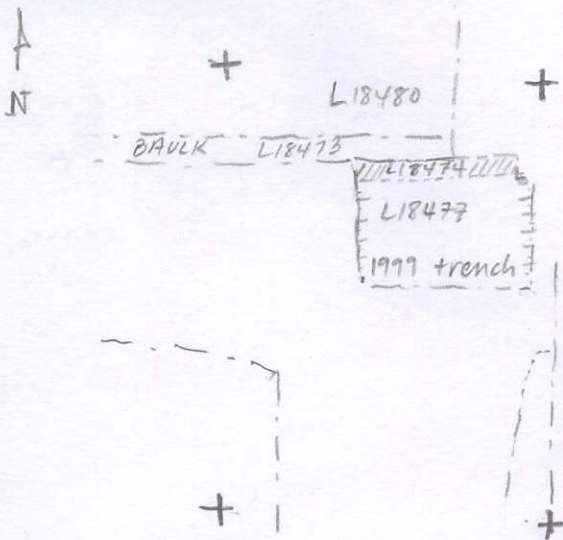 N
L18480
BAULK L18473
L18474
L18477
1999 trench